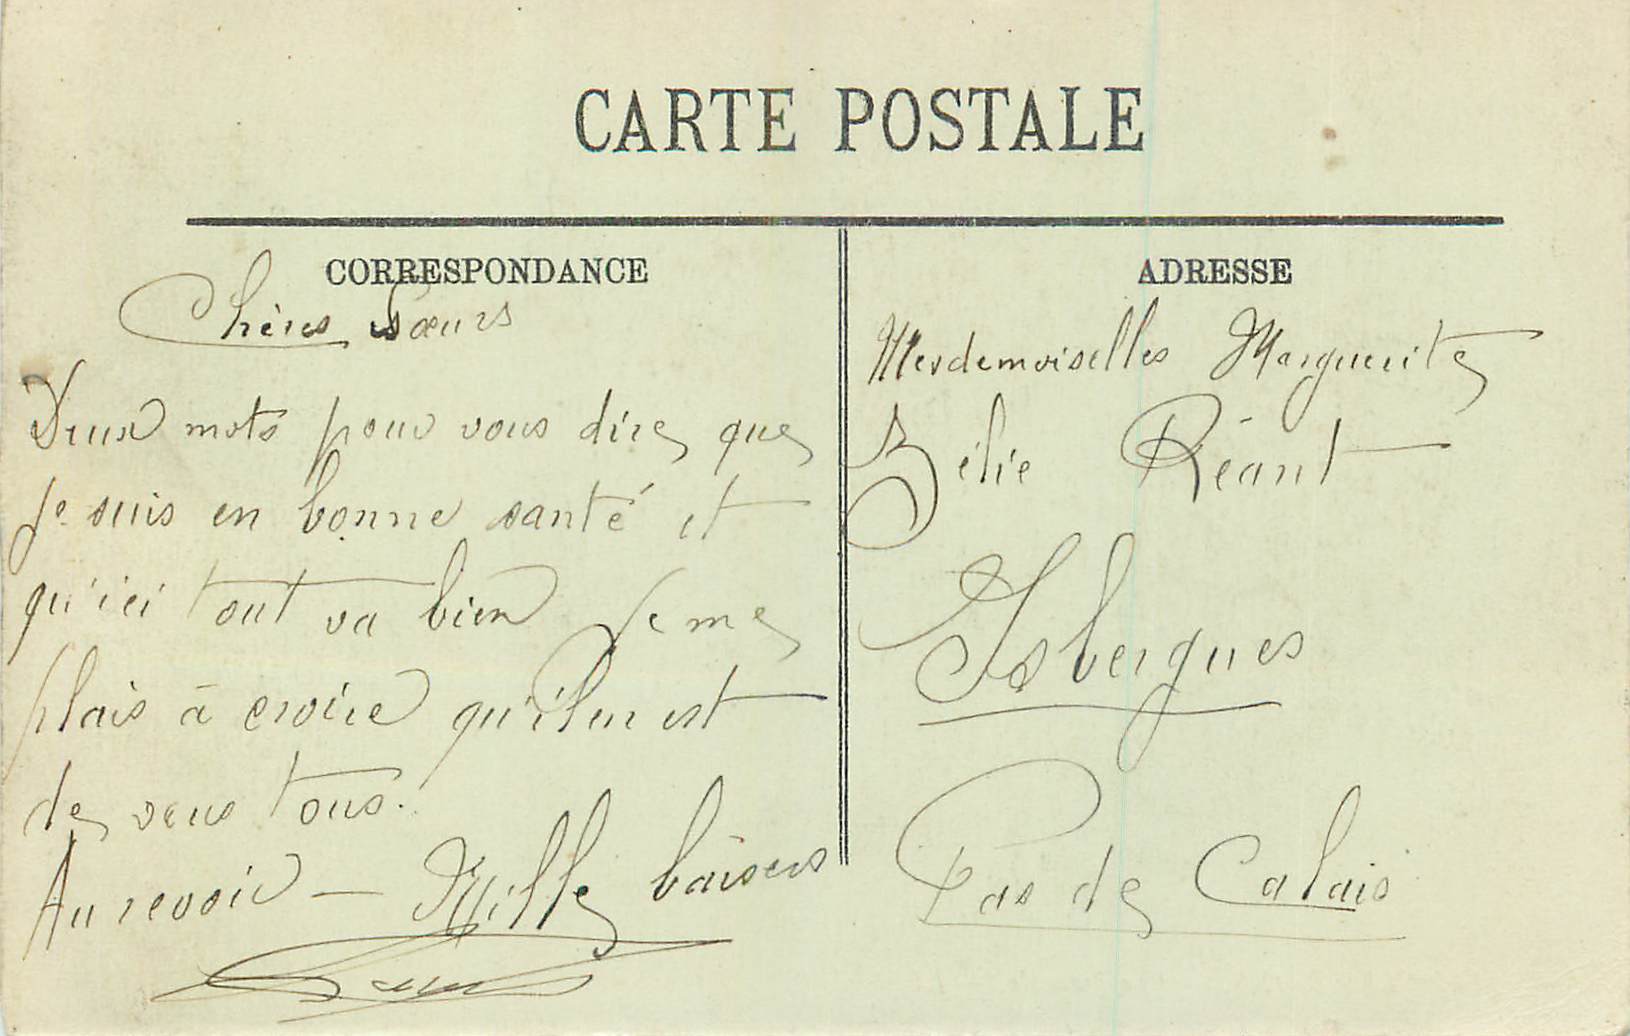 CARTE POSTALE
CORRESPONDANCE
Chères Sœurs
Deux mots pour vous dire que
je suis en bonne santé et
qu'ici tout va bien Je me
plais à croire qu'il en est
de vous tous.
Au revoir — Mille baisers
ADRESSE
Mesdemoiselles Marguerite
Zélie Réant
Isbergues
Pas de Calais